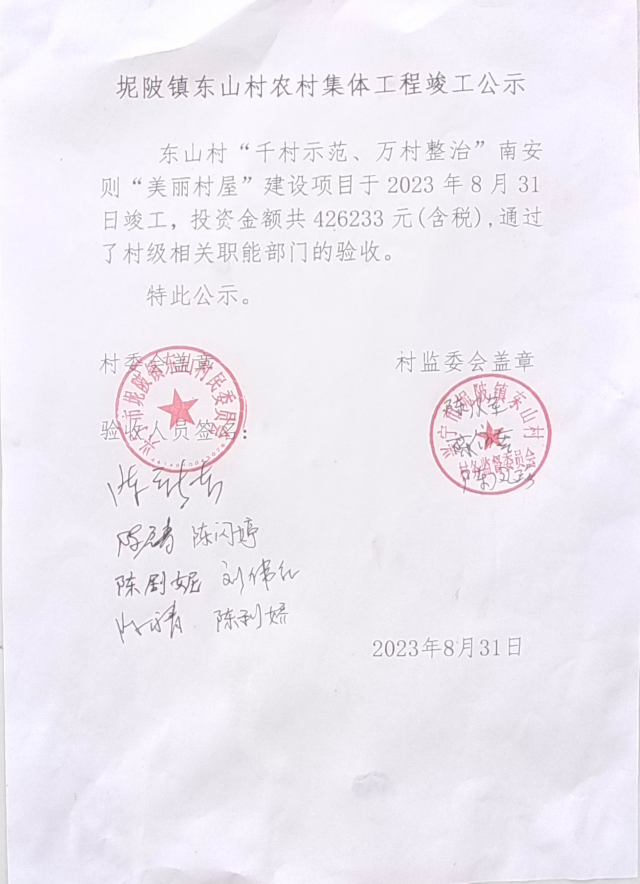 坭陂镇东山村农村集体工程竣工公示
东山村“千村示范、万村整治”南安
则“美丽村屋”建设项目于2023年8月31
日竣工，投资金额共426233元(含税),通过
了村级相关职能部门的验收。
特此公示。
村委会盖章
村监委会盖章
兴宁市坭陂镇东山村民委员会
兴宁市坭陂镇东山村
村务监督委员会
验收人员签名：
陈闪婷
陈剧妮 刘伟红
陈利娇
2023年8月31日